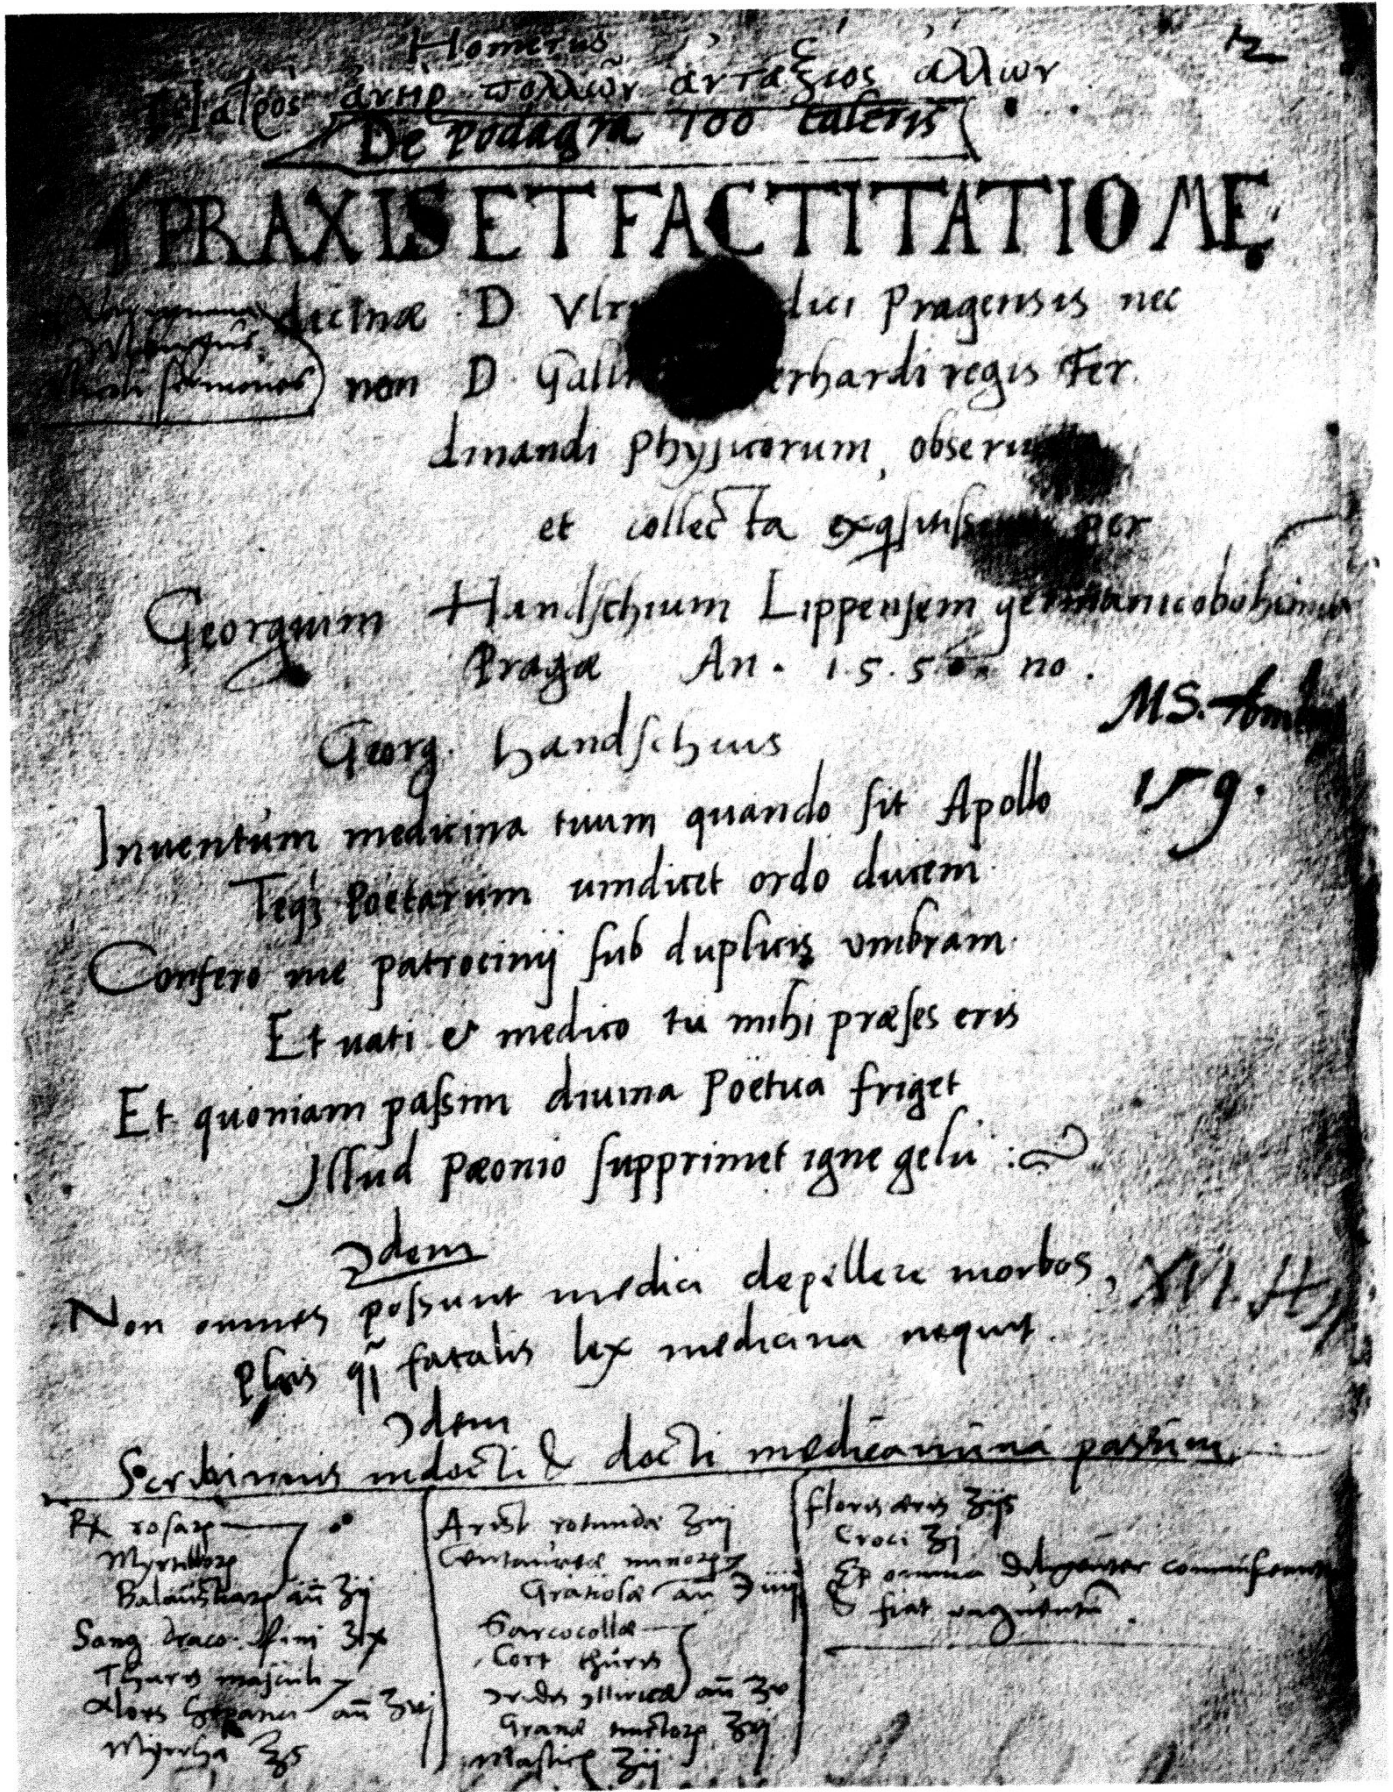 Homerus 2
Ἰατρὸς ἀνὴρ πολλῶν ἀντάξιος ἄλλων
De podagra 100 taleris
PRAXIS ET FACTITATIO ME
dicinæ D Vlr dici Pragensis nec
sermones) non D. Gall erhardi regis Fer
dinandi physicorum, obseru
et collecta exqsitiss per
Georgium Handschium Lippensem germanicobohimum
Pragæ An. 1.5.5 no.
MS. Ambr
Georg. Handschius
159.
Inuentum medicina tuum quando sit Apollo
Teqz Poetarum uindicet ordo ducem
Confero me patrocinij sub duplicis vmbram
Et uati & medico tu mihi præses eris
Et quoniam passim diuina Poëtica friget
Illud Pæonio supprimet igne gelu :
Idem
Non omnes possunt medici depellere morbos,
XVI. H
Plus qz fatalis lex medicina nequit.
Idem
Scribimus indocti & docti medicamina passim
Rx rosarz
Myrtillorz
Balaustiarz añ ʒij
Sang. draco. fini ʒix
Thuris masculi
Aloes hepatici añ ʒvj
Myrrha ʒs
Arist rotundæ ʒiij
Centaureæ minorz
Gratiolæ añ ℈iiij
Sarcocollæ
Cort thuris
Iridis illiricæ añ ʒv
Grana tinctorz ʒvj
Mastic ʒij
floris æris ʒijs
Croci ʒj
omnia diligenter
& fiat unguentū.